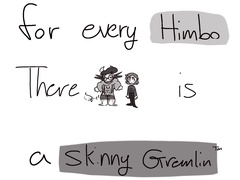 for every Himbo
There is
a Skinny Gremlin™